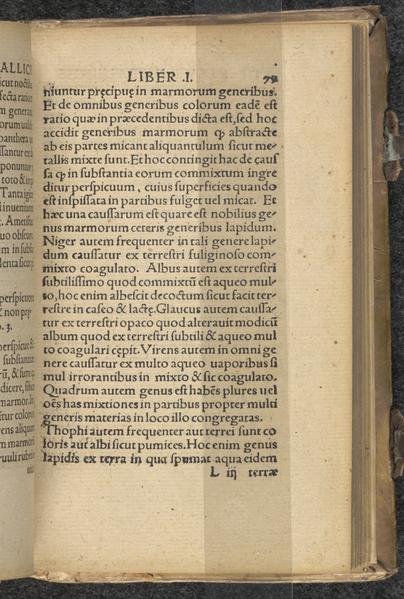 LIBER .I. 79
niuntur pręcipuę in marmorum generibus.
Et de omnibus generibus colorum eadē est
ratio quæ in præcedentibus dicta est, sed hoc
accidit generibus marmorum ꝙ abstracte
ab eis partes micant aliquantulum sicut me
tallis mixte sunt. Et hoc contingit hac de cauſ
ſa ꝙ in substantia eorum commixtum ingre
ditur perspicuum, cuius superficies quando
est inspissata in partibus fulget uel micat. Et
hæc una cauſſarum est quare est nobilius ge-
nus marmorum ceteris generibus lapidum.
Niger autem frequenter in tali genere lapi-
dum cauſſatur ex terrestri fuliginoso com-
mixto coagulato. Albus autem ex terrestri
subtilissimo quod commixtū est aqueo mul-
to, hoc enim albescit decoctum sicut facit ter-
restre in caseo & lactę. Glaucus autem cauſſa-
tur ex terrestri opaco quod alterauit modicū
album quod ex terrestri subtili & aqueo mul
to coagulari cępit. Virens autem in omni ge
nere cauſſatur ex multo aqueo uaporibus si
mul irrorantibus in mixto & sic coagulato.
Quadrum autem genus est habēs plures uel
oēs has mixtiones in partibus propter multi
generis materias in loco illo congregatas.
Thophi autem frequenter aut terrei sunt co
loris aut albi sicut pumices. Hoc enim genus
lapidis ex terra in qua spumat aqua eidem
L iij terræ